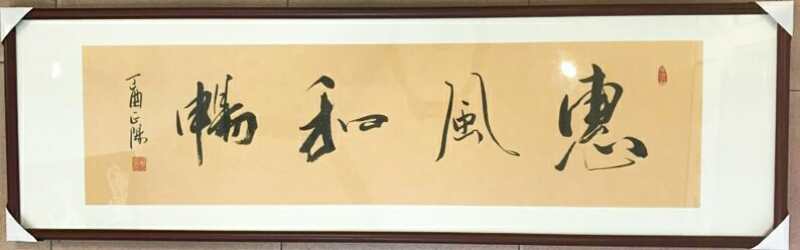 惠風和暢
丁酉正陽